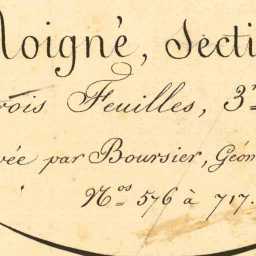 Moigné, Secti
rois Feuilles, 3
vée par Boursier, Géom
Nos 576 à 717.